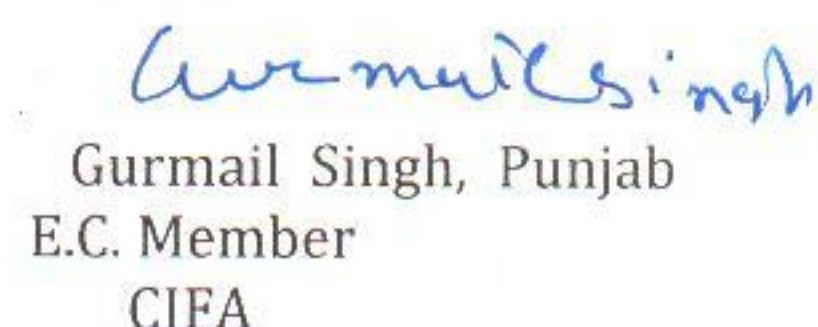 Gurmail Singh
Gurmail Singh, Punjab
E.C. Member
CIFA